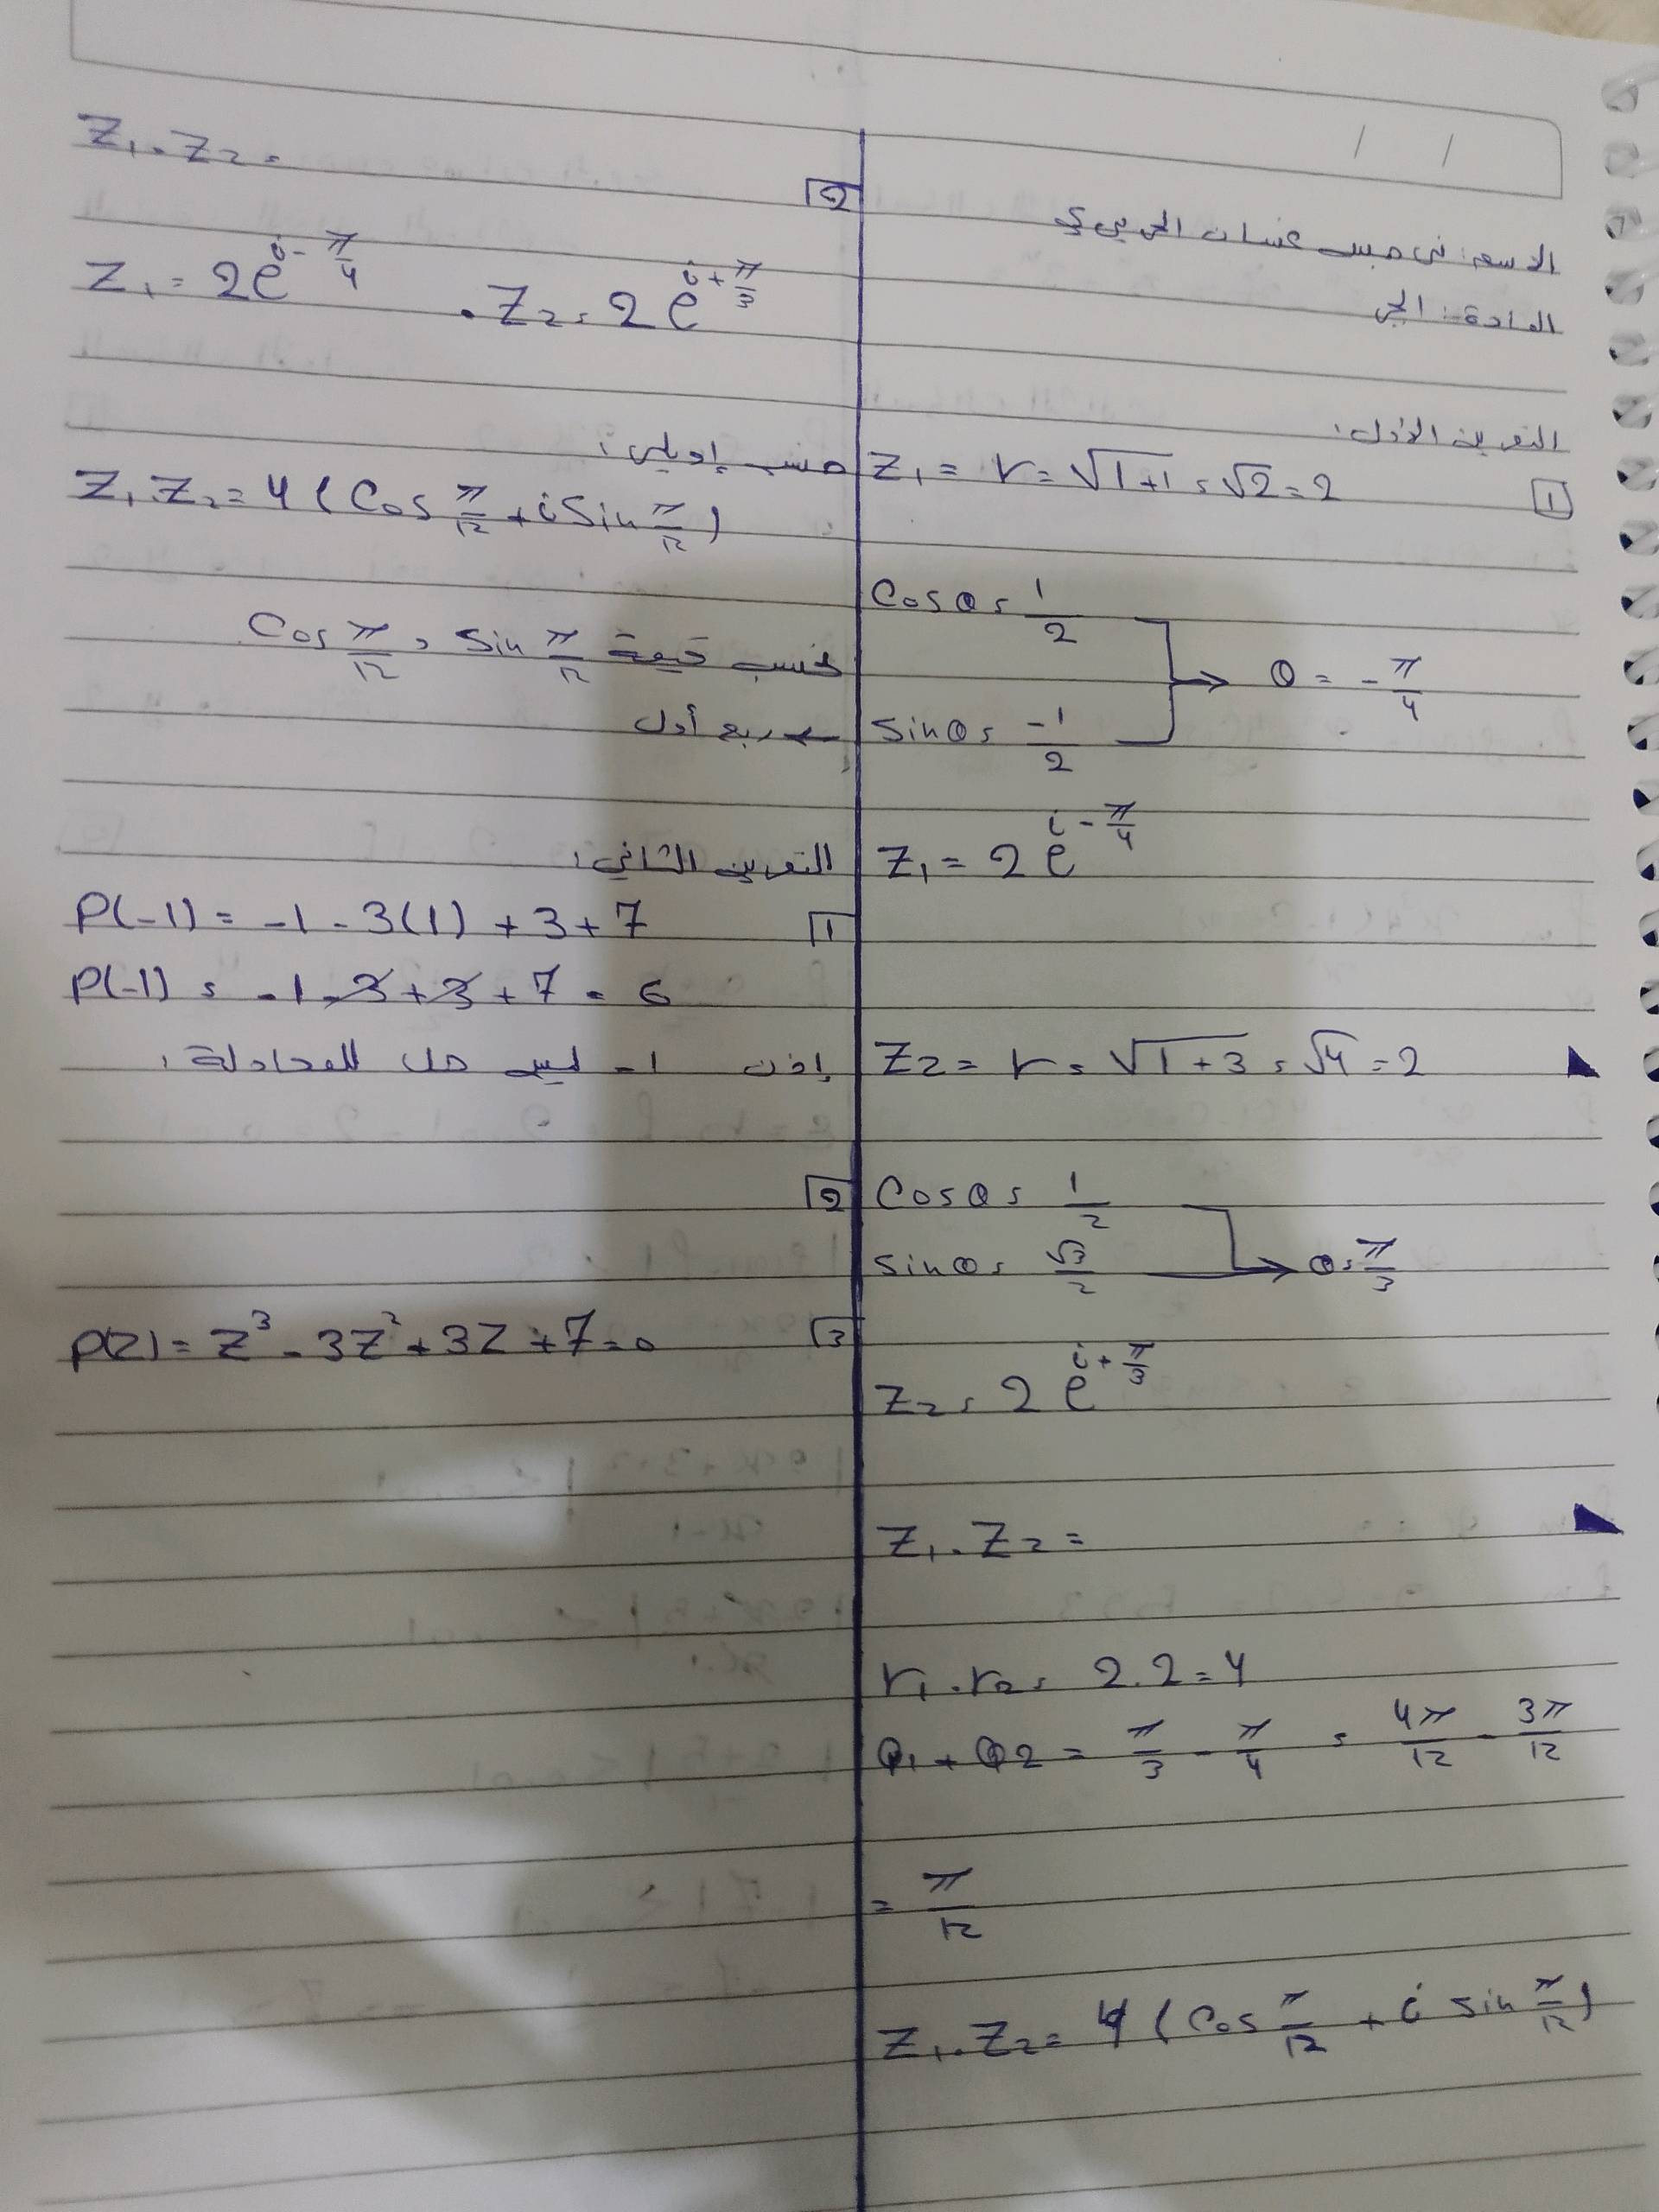 المادة: الجبر
التمرين الأول:
1
Z₁ = r = √1+1 = √2 = 2
Cosθ = 1/2
Sinθ = -1/2
θ = -π/4
Z₁ = 2 e^{i - π/4}
Z₂ = r = √1+3 = √4 = 2
Cosθ = 1/2
Sinθ = √3/2
θ = π/3
Z₂ = 2 e^{i + π/3}
Z₁ . Z₂ =
r₁ . r₂ = 2.2 = 4
θ₁ + θ₂ = π/3 - π/4 = 4π/12 - 3π/12
= π/12
Z₁ . Z₂ = 4 (Cos π/12 + i Sin π/12)
Z₁ . Z₂ =
2
Z₁ = 2e^{i - π/4} . Z₂ = 2 e^{i + π/3}
حسب
Z₁ Z₂ = 4 (Cos π/12 + i Sin π/12)
نحسب قيمة Cos π/12 , Sin π/12
← ربع أول
التمرين الثاني:
1
P(-1) = -1 - 3(1) + 3 + 7
P(-1) = -1 - 3 + 3 + 7 = 6
إذن -1 ليس حل للمعادلة
2
3
P(Z) = Z³ - 3Z² + 3Z + 7 = 0